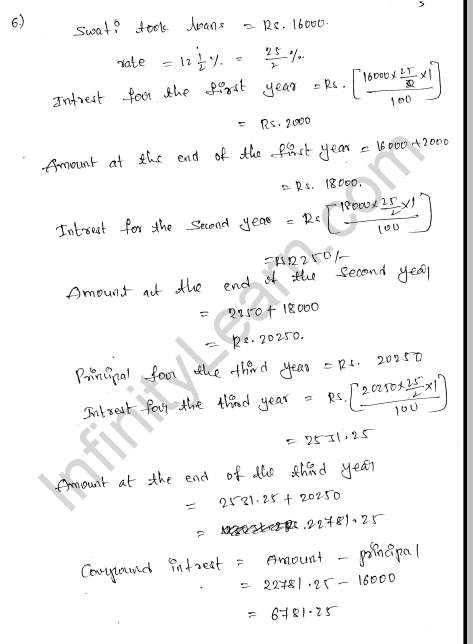 5
6.) Swati took loans = Rs. 16000.
rate = 12 1/2 % = 25/2 %.
Intrest foor the first year = Rs. [16000 x 25/2 x 1 / 100]
= Rs. 2000
Amount at the end of the first year = 16000 + 2000
= Rs. 18000.
Intrest for the Second year = Rs [18000 x 25/2 x 1 / 100]
= Rs 2250/-
Amount at the end of the second year
= 2250 + 18000
= Rs. 20250.
Principal foor the third year = Rs. 20250
Intrest four the third year = Rs. [20250 x 25/2 x 1 / 100]
= 2531.25
Amount at the end of the third year
= 2531.25 + 20250
= .22781.25
Compound intrest = Amount - principal
= 22781.25 - 16000
= 6781.25
InfinityLearn.com